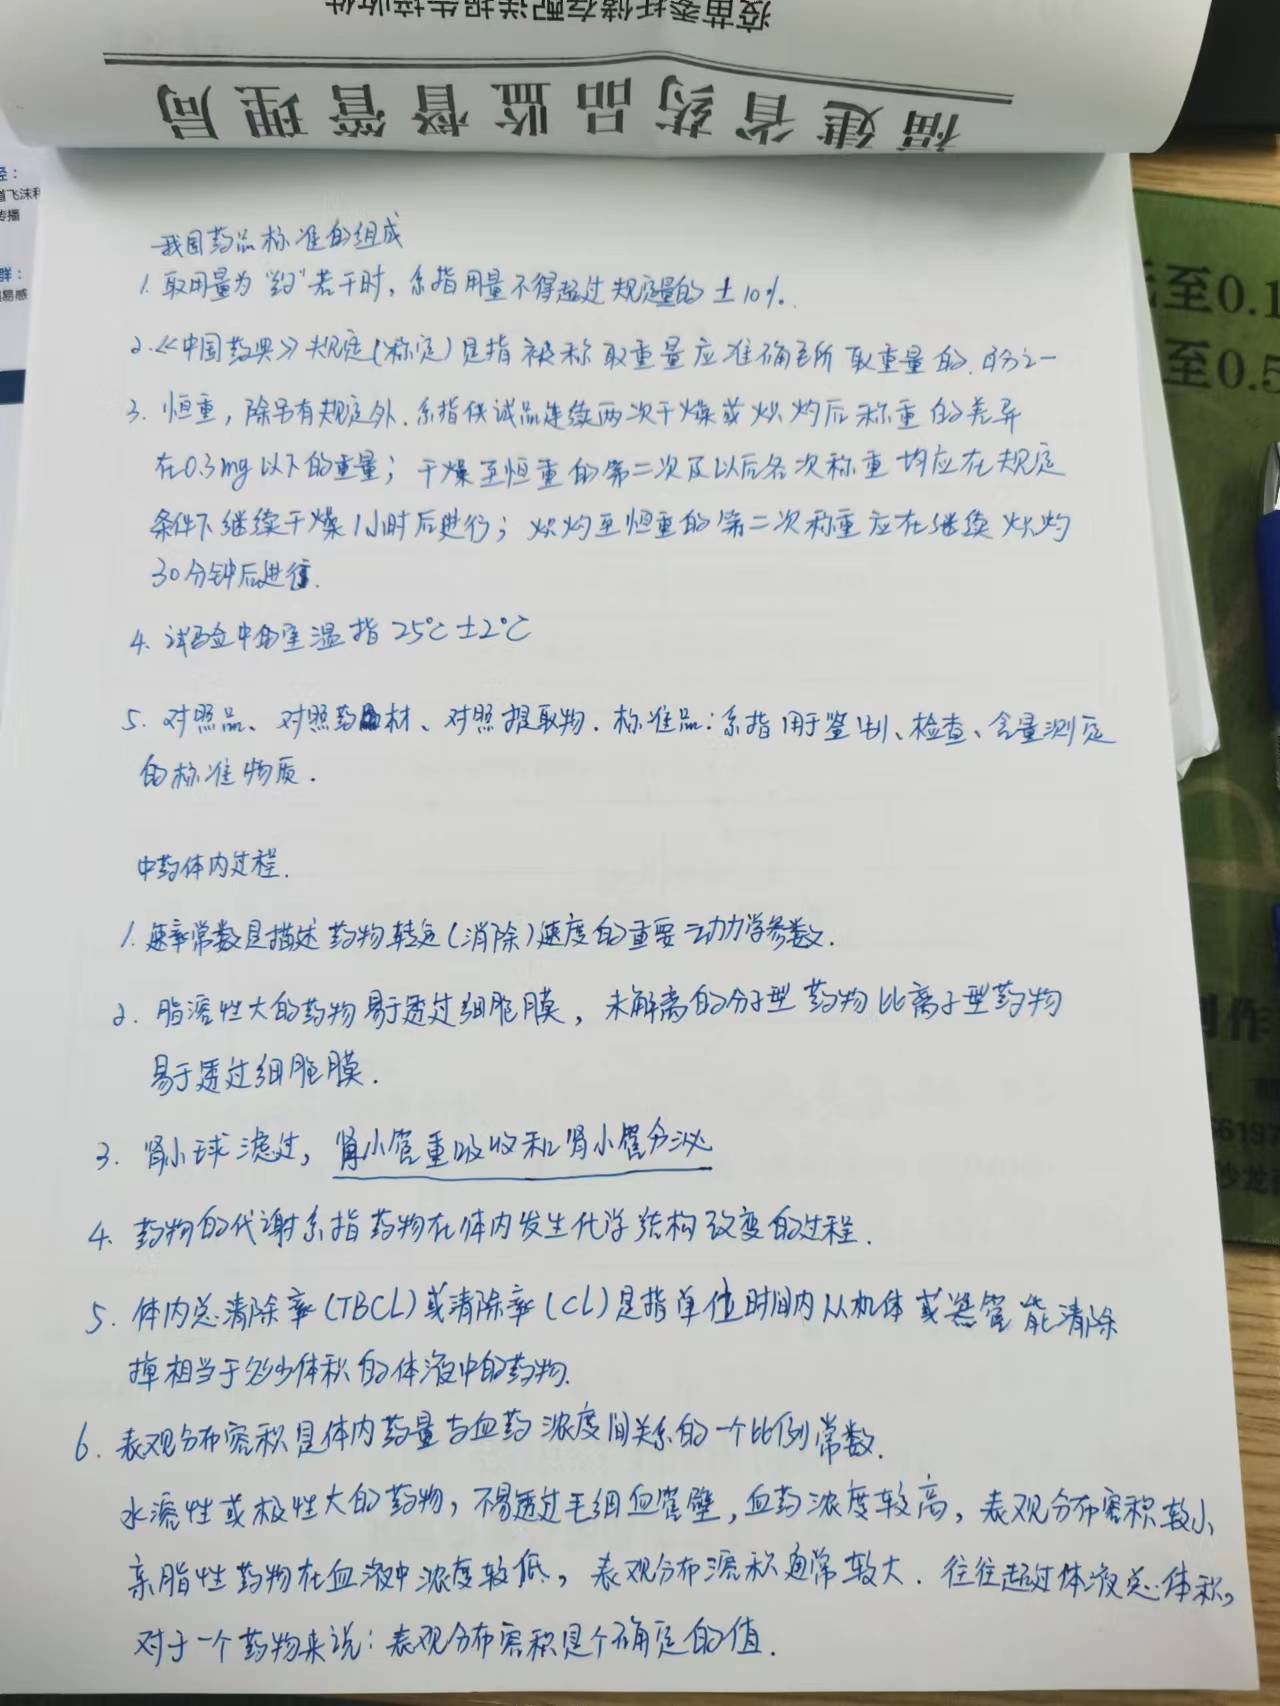 疫苗委托储存配送报告接收件
福建省药品监督管理局
径：
道飞沫和
传播
群：
易感
至0.1
至0.5
制作
6619
沙龙
我国药品标准的组成
1. 取用量为“约”若干时，系指用量不得超过规定量的±10%.
2.《中国药典》规定(称定)是指被称取重量应准确至所取重量的.百分之一
3. 恒重，除另有规定外.系指供试品连续两次干燥或炽灼后称重的差异
在0.3mg以下的重量；干燥至恒重的第二次及以后各次称重均应在规定
条件下继续干燥1小时后进行；炽灼至恒重的第二次称重应在继续炽灼
30分钟后进行.
4. 试验中的室温指25℃±2℃
5. 对照品、对照药材、对照提取物.标准品：系指用于鉴别、检查、含量测定
的标准物质.
中药体内过程.
1. 速率常数是描述药物转运(消除)速度的重要动力学参数.
2. 脂溶性大的药物易于透过细胞膜，未解离的分子型药物比离子型药物
易于透过细胞膜.
3. 肾小球滤过，肾小管重吸收和肾小管分泌
4. 药物的代谢系指药物在体内发生化学结构改变的过程.
5. 体内总清除率(TBCL)或清除率(CL)是指单位时间内从机体或器管能清除
掉相当于多少体积的体液中的药物.
6. 表观分布容积是体内药量与血药浓度间关系的一个比例常数.
水溶性或极性大的药物，不易透过毛细血管壁，血药浓度较高，表观分布容积较小,
亲脂性药物在血液中浓度较低，表观分布溶积通常较大.往往超过体液总体积,
对于一个药物来说：表观分布容积是个确定的值.